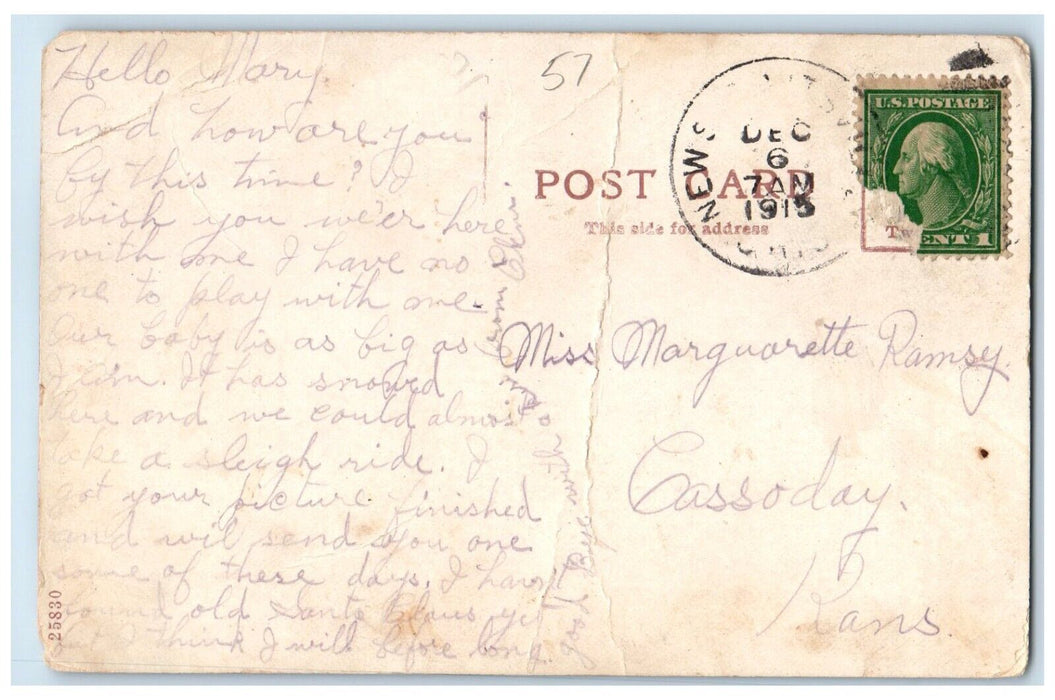 Hello Mary.
And how are you
by this time? I
wish you we'er here
with me I have no
one to play with me.
Our baby is as big as
I am. It has snowed
here and we could almost
take a sleigh ride. I
got your picture finished
and wil send you one
some of these days. I have
found old Santa Claus yet
but I think I will before long.
good Bye with
from
25830
57
POST CARD
This side for address
NEWS
DEC
6
7 AM
1915
OHIO
U.S. POSTAGE
CENT 1
Miss Marguarette Ramsy.
Cassoday.
Kans.